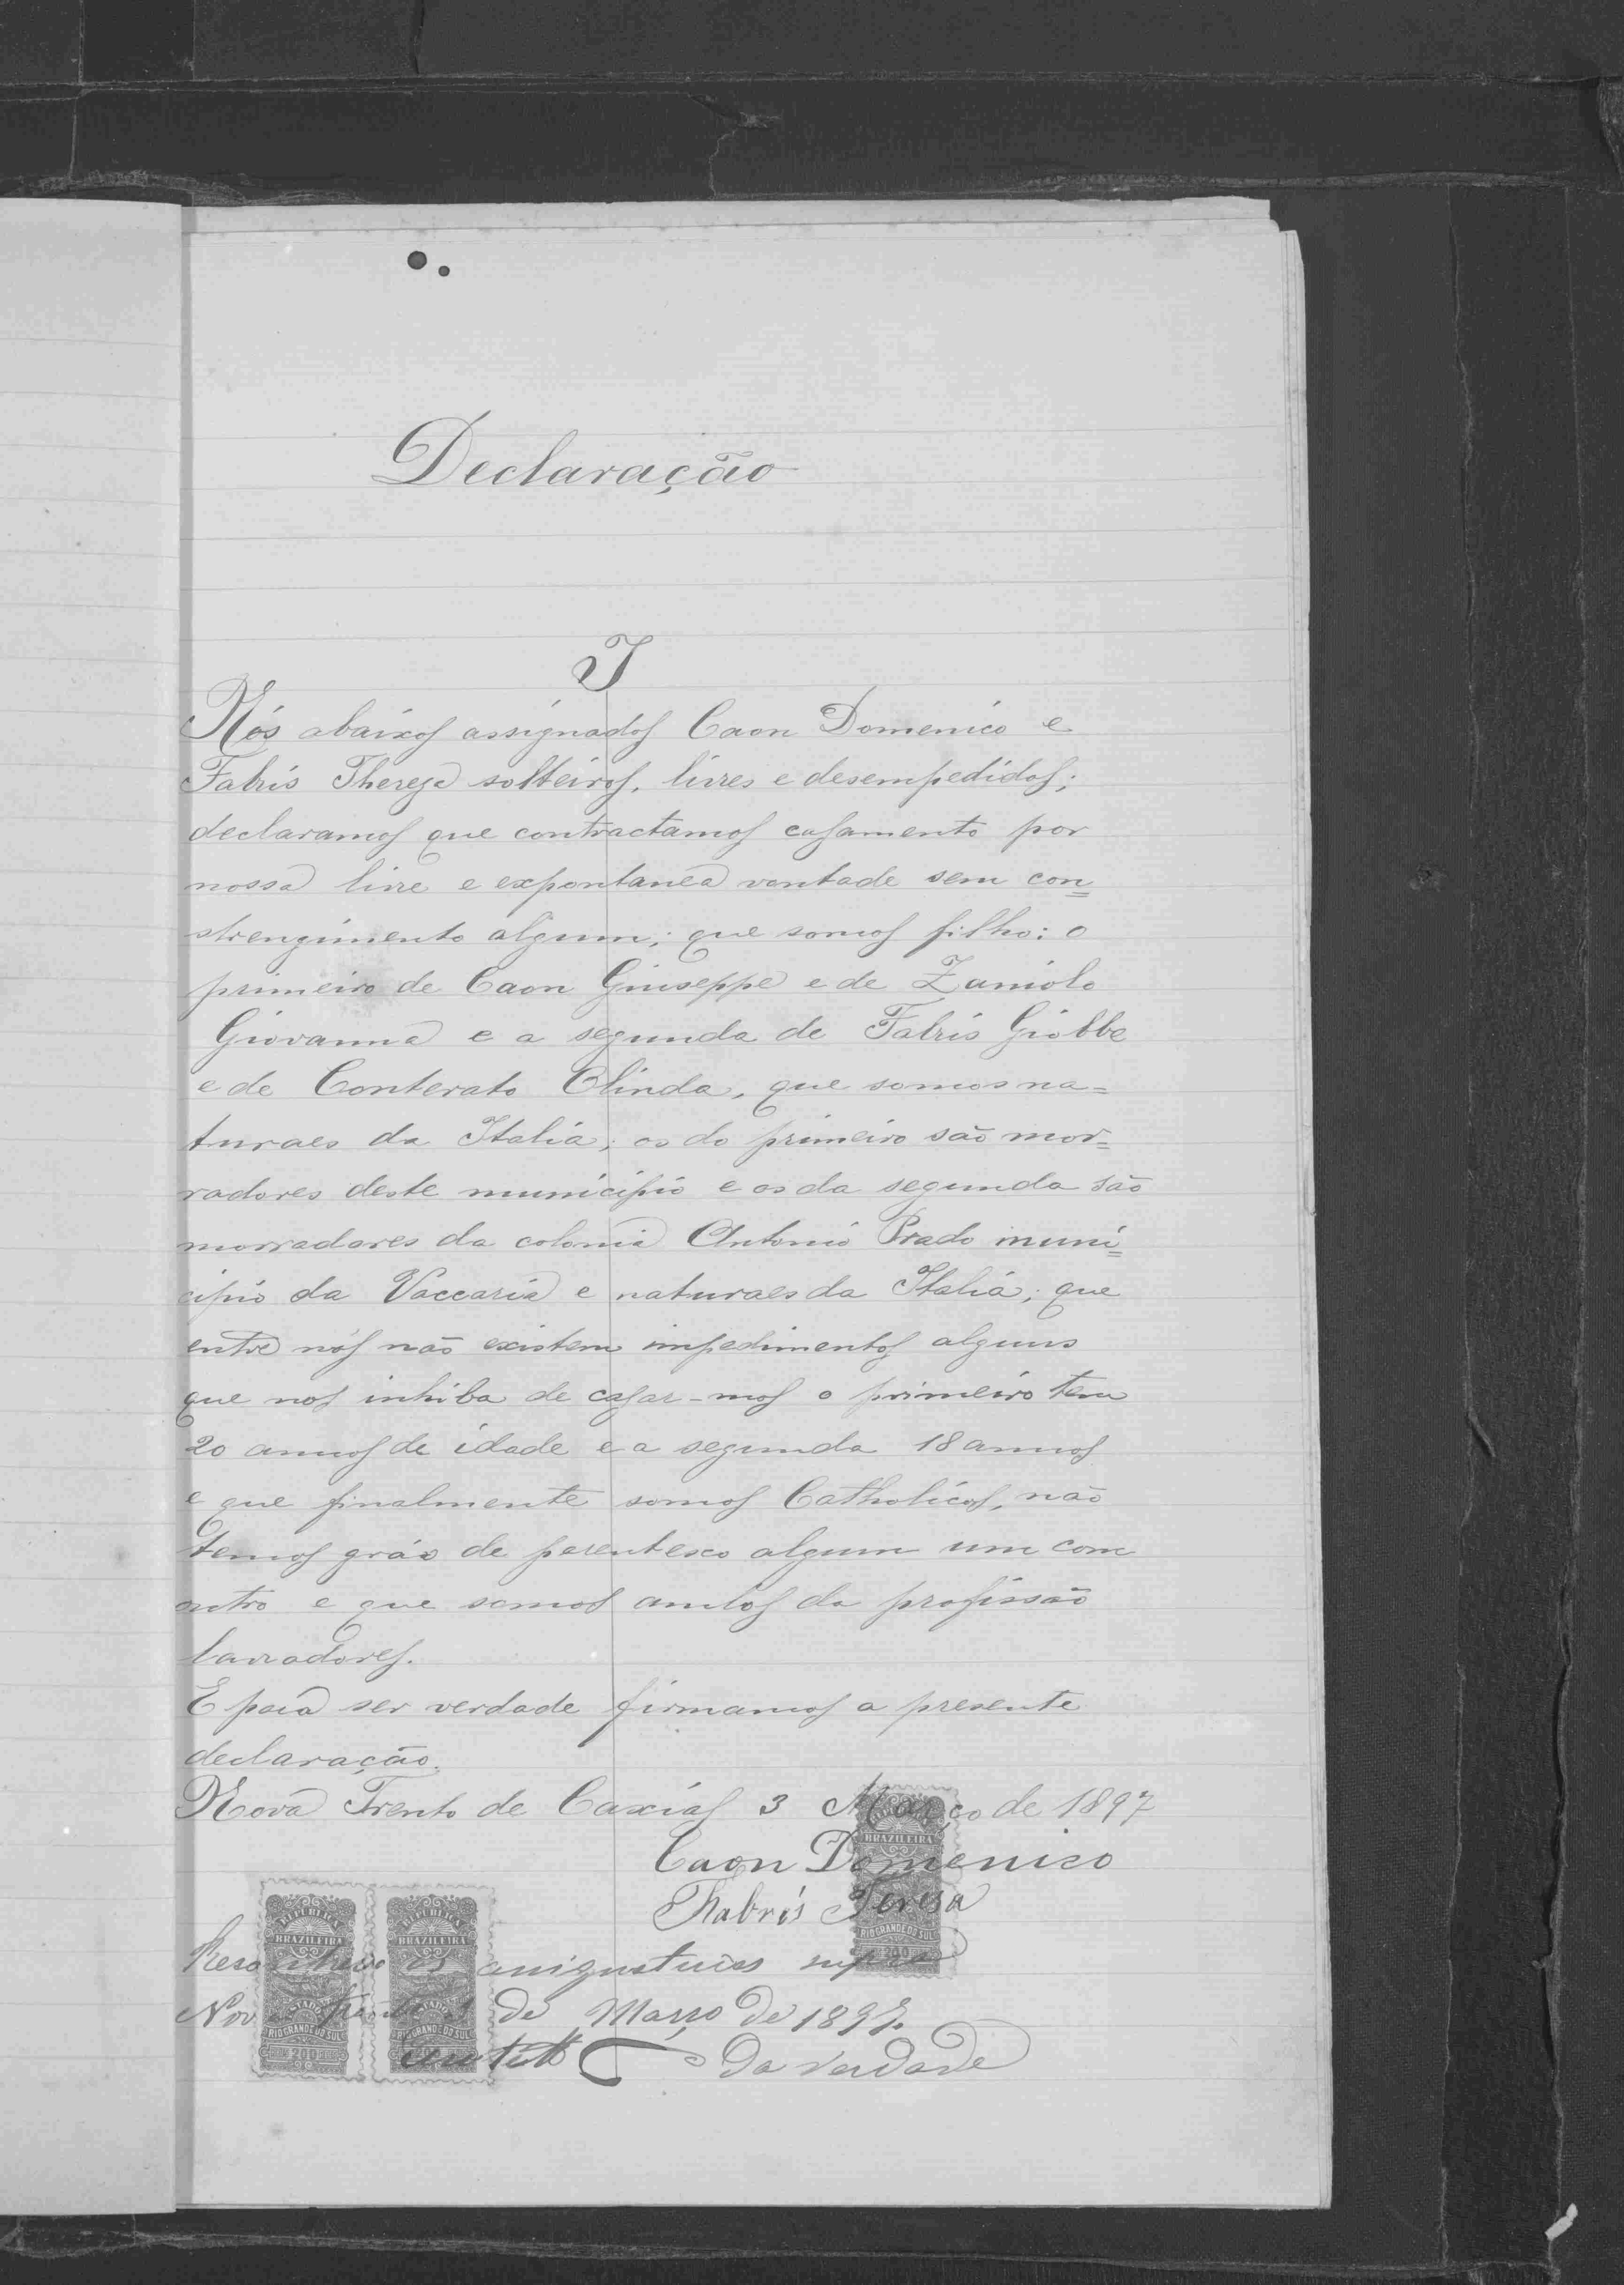 Declaração
I
Nós abaixos assignados Caon Domenico e
Fabris Thereza solteiros, livres e desempedidos;
declaramos que contractamos casamento por
nossa livre e expontanea vontade sem con=
strengimento algum; que somos filho: o
primeiro de Caon Giuseppe e de Zaniolo
Giovanna e a segunda de Fabris Giobbe
e de Conterato Olinda, que somos na=
turaes da Italia; os do primeiro são mor=
radores deste municipio e os da segunda são
morradores da colonia Antonio Prado muni=
cipio da Vaccaria e naturaes da Italia; que
entre nós não existem impedimentos alguns
que nos inhiba de casar-mos o primeiro tem
20 annos de idade e a segunda 18 annos
e que finalmente somos Catholicos, não
temos gráo de parentesco algum um com
outro e que somos ambos da profissão
lavradores.
E para ser verdade firmamos a presente
declaração.
Nova Trento de Caxias 3 Março de 1897
Caon Domenico
Fabris Teresa
REPUBLICA BRAZILEIRA
ESTADO
RIO GRANDE DO SUL
200
REPUBLICA BRAZILEIRA
ESTADO
RIO GRANDE DO SUL
200
BRAZILEIRA
RIO GRANDE DO SUL
200
as assignaturas supra
de Março de 1897.
da verdade